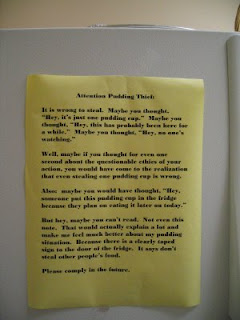 Attention Pudding Thief:
It is wrong to steal. Maybe you thought,
"Hey, it's just one pudding cup." Maybe you
thought, "Hey, this has probably been here for
a while." Maybe you thought, "Hey, no one's
watching."
Well, maybe if you thought for even one
second about the questionable ethics of your
action, you would have come to the realization
that even stealing one pudding cup is wrong.
Also: maybe you would have thought, "Hey,
someone put this pudding cup in the fridge
because they plan on eating it later on today."
But hey, maybe you can't read. Not even this
note. That would actually explain a lot and
make me feel much better about my pudding
situation. Because there is a clearly taped
sign to the door of the fridge. It says don't
steal other people's food.
Please comply in the future.